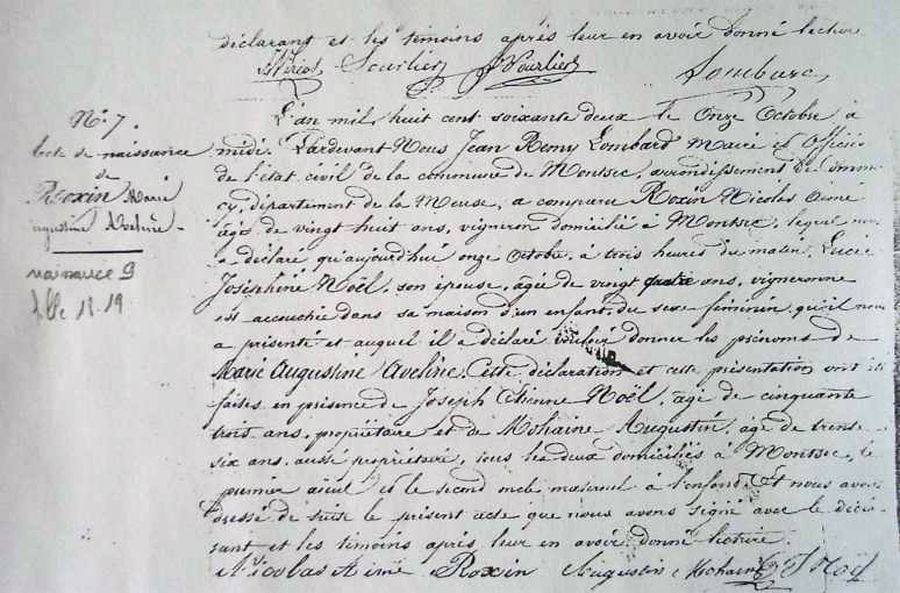 déclarant et les témoins après leur en avoir donné lecture
Lombard
N° 7.
Acte de naissance
de
Roxin Marie
Augustine Aveline
naissance 9
L'an mil huit cent soixante deux le onze Octobre à
midi. Pardevant Nous Jean Remy Lombard Maire et Officier
de l'état civil de la commune de Montsec, arrondissement de Comm
cy, département de la Meuse, a comparu Roxin Nicolas Aimé
âgé de vingt huit ans, vigneron domicilié à Montsec, lequel nous
a déclaré qu'aujourd'hui onze Octobre, à trois heures du matin, Lucie
Joséphine Noël, son épouse, âgée de vingt quatre ans, vigneronne
est accouchée dans sa maison d'un enfant du sexe féminin qu'il nous
a présenté et auquel il a déclaré vouloir donner les prénoms de
Marie Augustine Aveline. Cette déclaration et cette présentation ont été
faites en présence de Joseph Etienne Noël, âgé de cinquante
trois ans, propriétaire et de Mohaine Augustin, âgé de trente
six ans, aussi propriétaire, tous les deux domiciliés à Montsec, le
premier aïeul et le second oncle maternel à l'enfant. Et nous avons
dressé de suite le présent acte que nous avons signé avec le décla-
rant et les témoins après leur en avoir donné lecture.
Nicolas Aimé Roxin Augustin Mohaine Noël